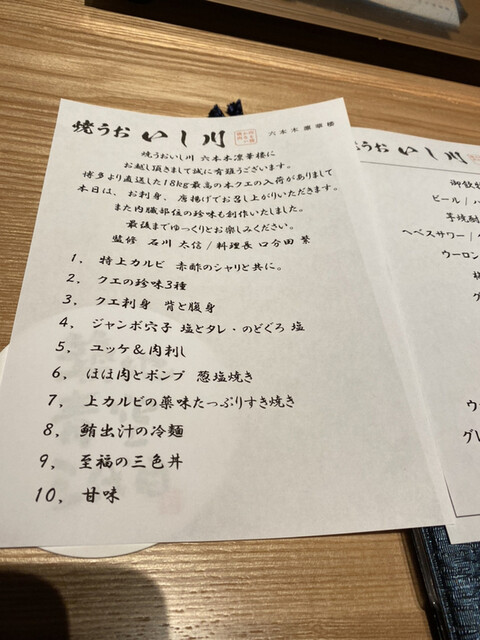 焼うお いし川 六本木凛華楼
焼うおいし川 六本木凛華楼に
お越し頂きまして誠に有難うございます。
博多より直送した18kg最高の本クエの入荷がありまして
本日は、お刺身、唐揚げでお召し上がりいただきます。
また内臓部位の珍味も創作いたしました。
最後までゆっくりとお楽しみください。
監修 石川 太信/料理長 口分田 紫
1, 特上カルビ 赤酢のシャリと共に。
2, クエの珍味3種
3, クエ刺身 背と腹身
4, ジャンボ穴子 塩とタレ・のどぐろ 塩
5, ユッケ&肉刺し
6, ほほ肉とポンプ 葱塩焼き
7, 上カルビの薬味たっぷりすき焼き
8, 鮪出汁の冷麺
9, 至福の三色丼
10, 甘味
焼うお いし川
御飲
ビール/
芋焼酎
ヘベスサワー/
ウーロン
グ
ウ
グレ